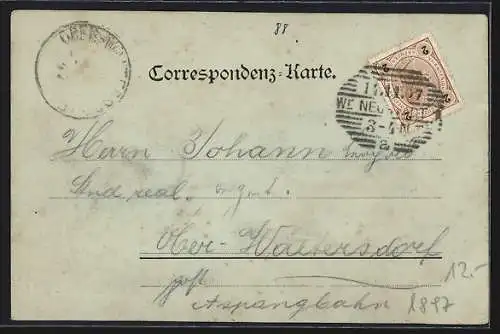 88
OBER-
2
Correspondenz-Karte.
11.11.97
WR. NEU
3-4 N
a
Herrn Johann
Stud real.
Ober-Waltersdorf
post
Aspangbahn
12.-
1897